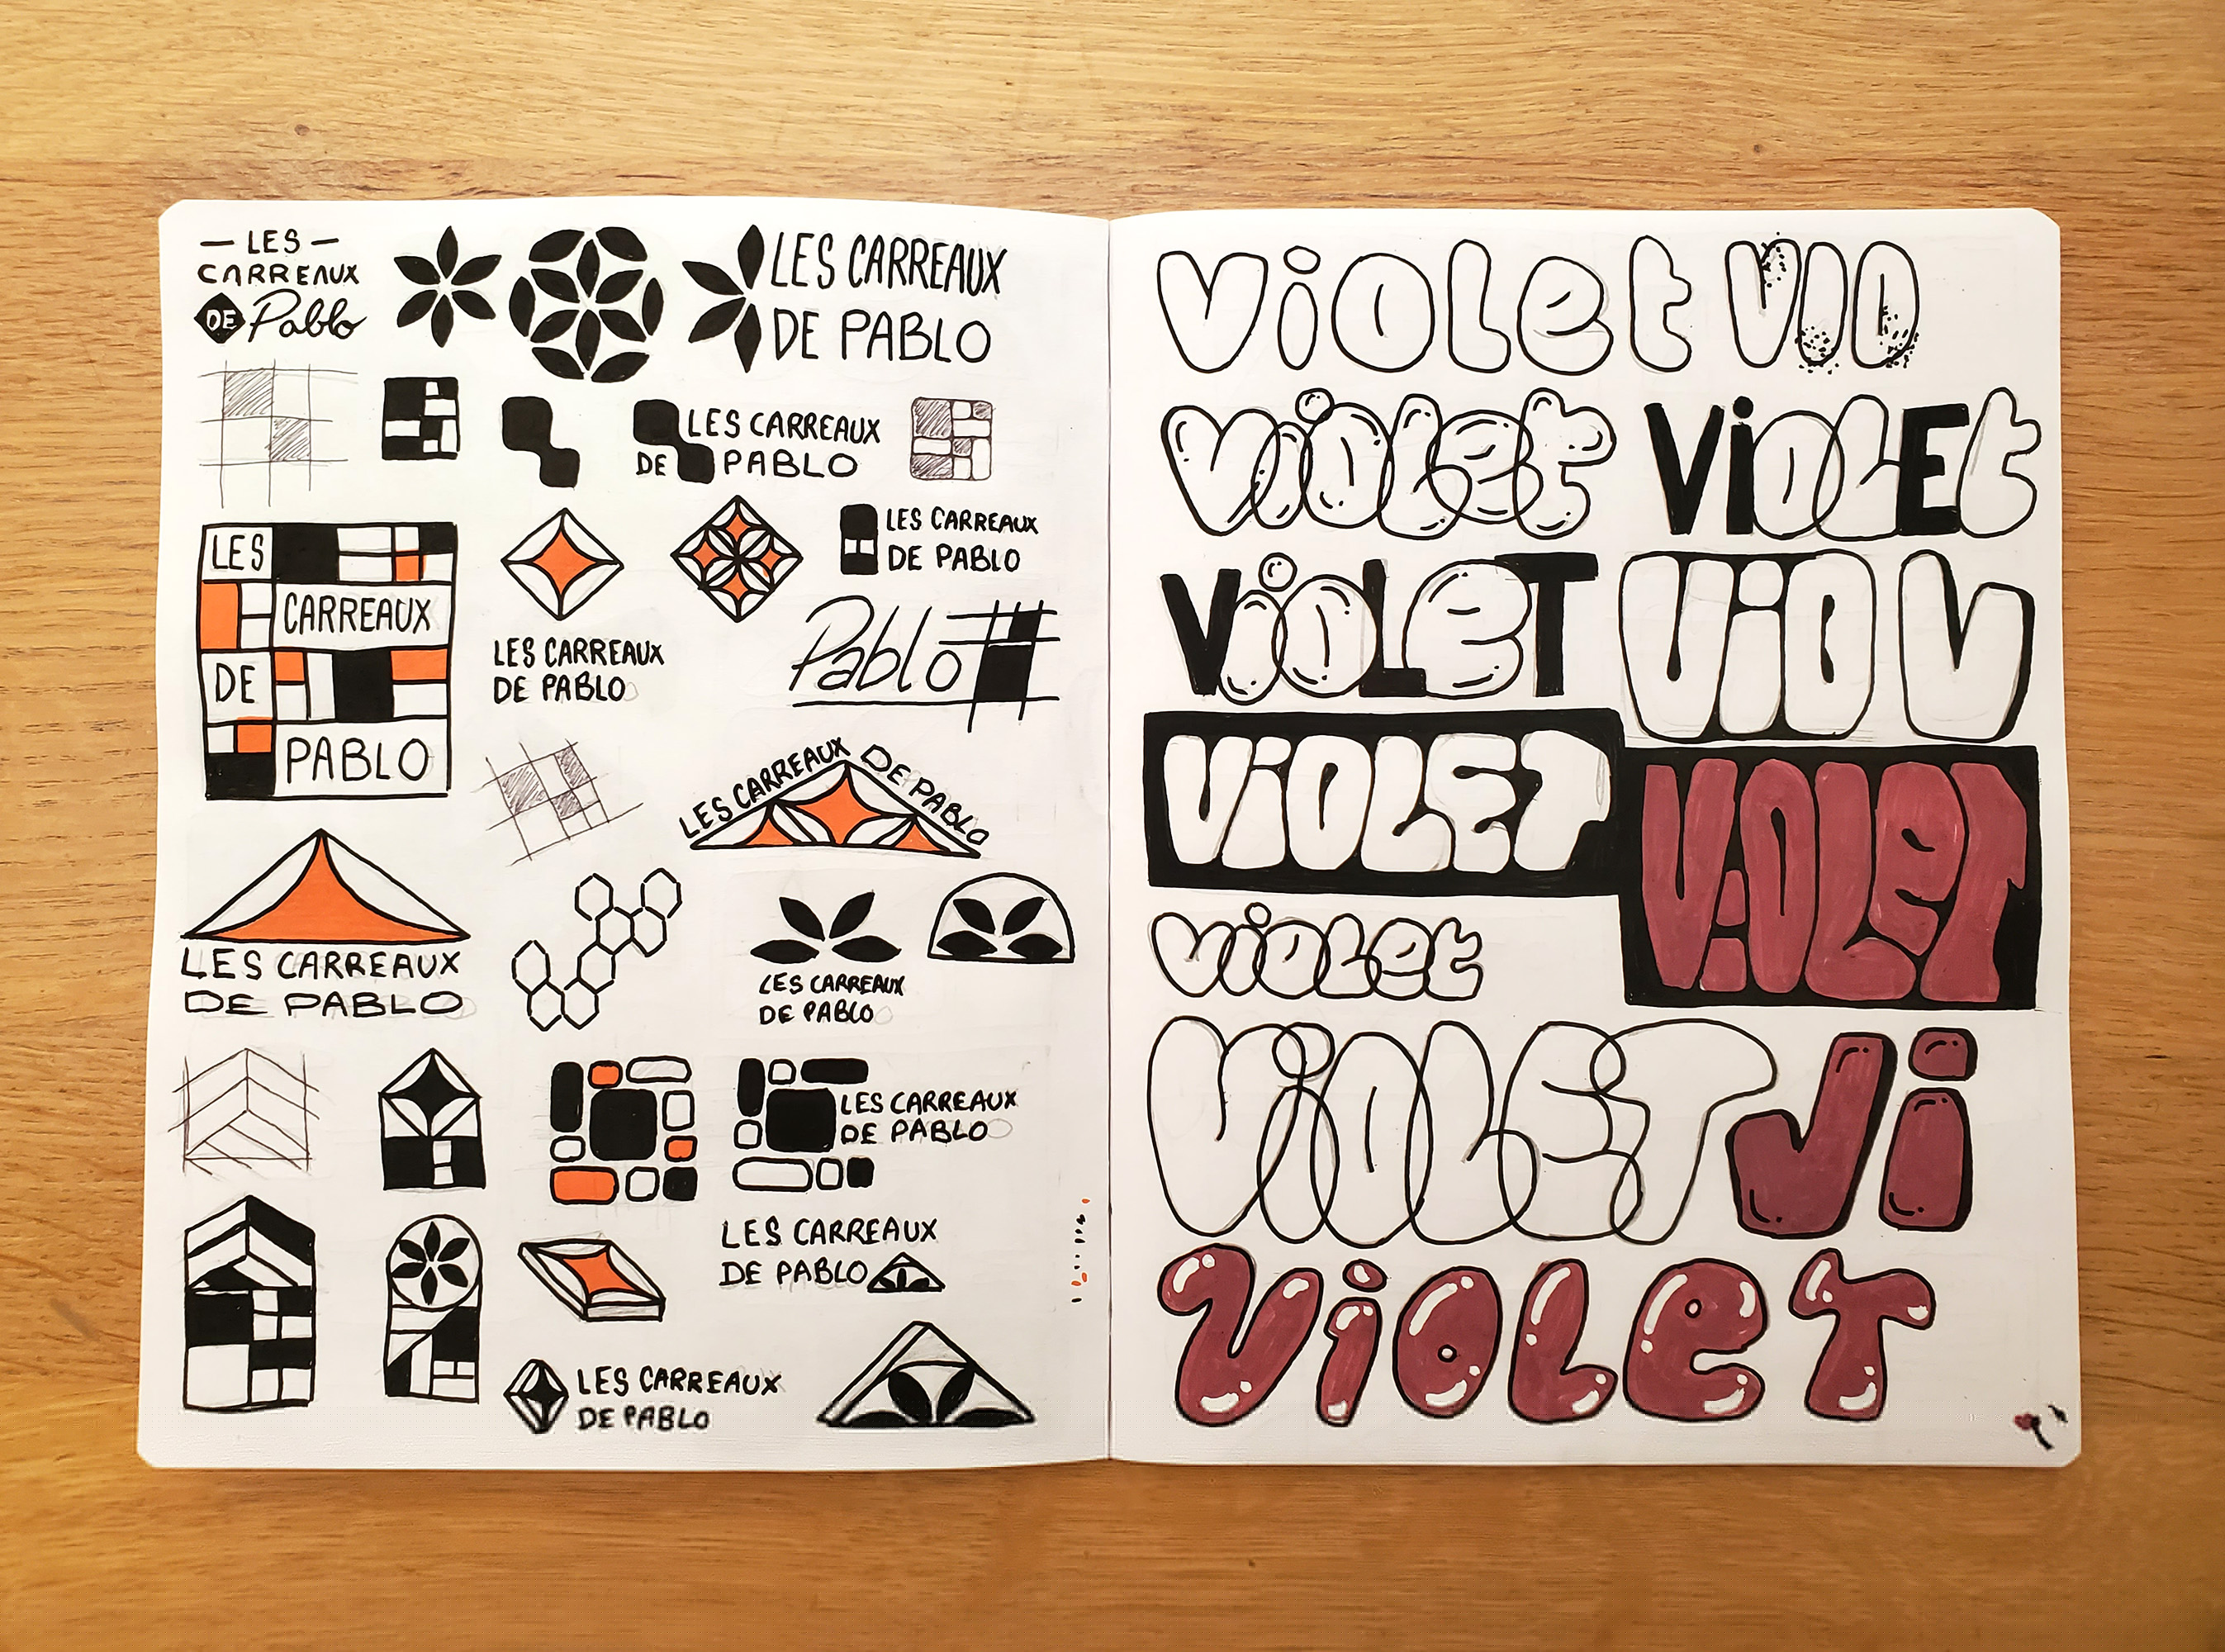 — LES —
CARREAUX
DE Pablo
LES CARREAUX
DE PABLO
LES CARREAUX
DE PABLO
LES
CARREAUX
DE
PABLO
LES CARREAUX
DE PABLO
LES CARREAUX
DE PABLO
Pablo
LES CARREAUX DE PABLO
LES CARREAUX
DE PABLO
LES CARREAUX
DE PABLO
LES CARREAUX
DE PABLO
LES CARREAUX
DE PABLO
LES CARREAUX
DE PABLO
violet VIO
violet ViOLEt
ViOLeT ViO V
ViOLET
ViOLeT
violet
ViOLET Ji
VioLeT